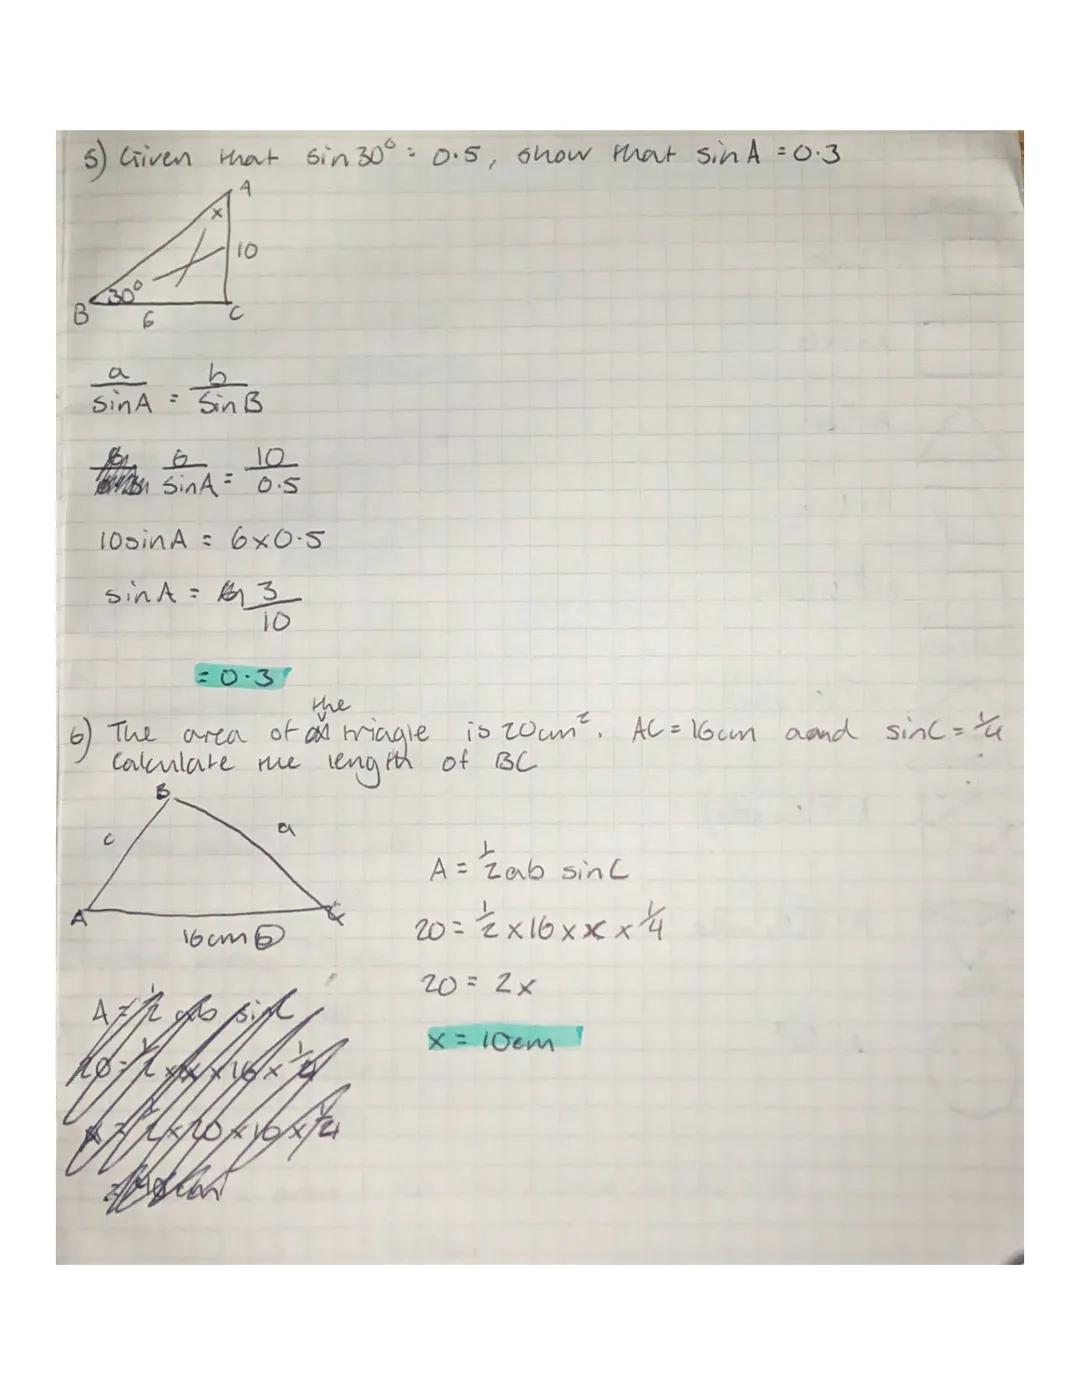 5) Given that sin 30° = 0.5, show that sin A = 0.3
A
x
10
30°
B
6
C
a/sinA = b/SinB
6/sinA = 10/0.5
10sinA = 6×0.5
sinA = 3/10
= 0.3
the
6) The area of triagle is 20cm². AC = 16cm aand sinC = 1/4
Calculate the length of BC
B
c
a
A
C
16cm b
A = 1/2 ab sinC
20 = 1/2 × 16 × x × 1/4
20 = 2x
x = 10cm
A = 1/2 ab sinC
20 = 1/2 × x × 16 × 1/4
x = 1/2 × 20 × 16 × 1/4